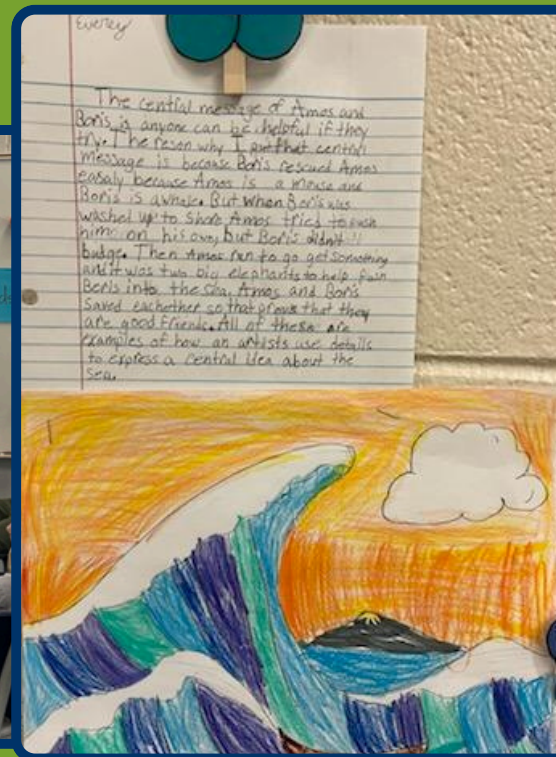 Everey
The central message of Amos and
Boris is anyone can be helpful if they
try. The reson why I put that central
message is because Boris rescued Amos
easaly because Amos is a mouse and
Boris is a whale. But when Boris was
washed up to shore Amos tried to push
hime on his own, but Boris didn't
budge. Then Amos run to go get something
and it was two big elephants to help Push
Boris into the sea. Amos and Boris
saved eachether so that prows that they
are good friends. All of these are
examples of how an artists use details
to express a central idea about the
sea.